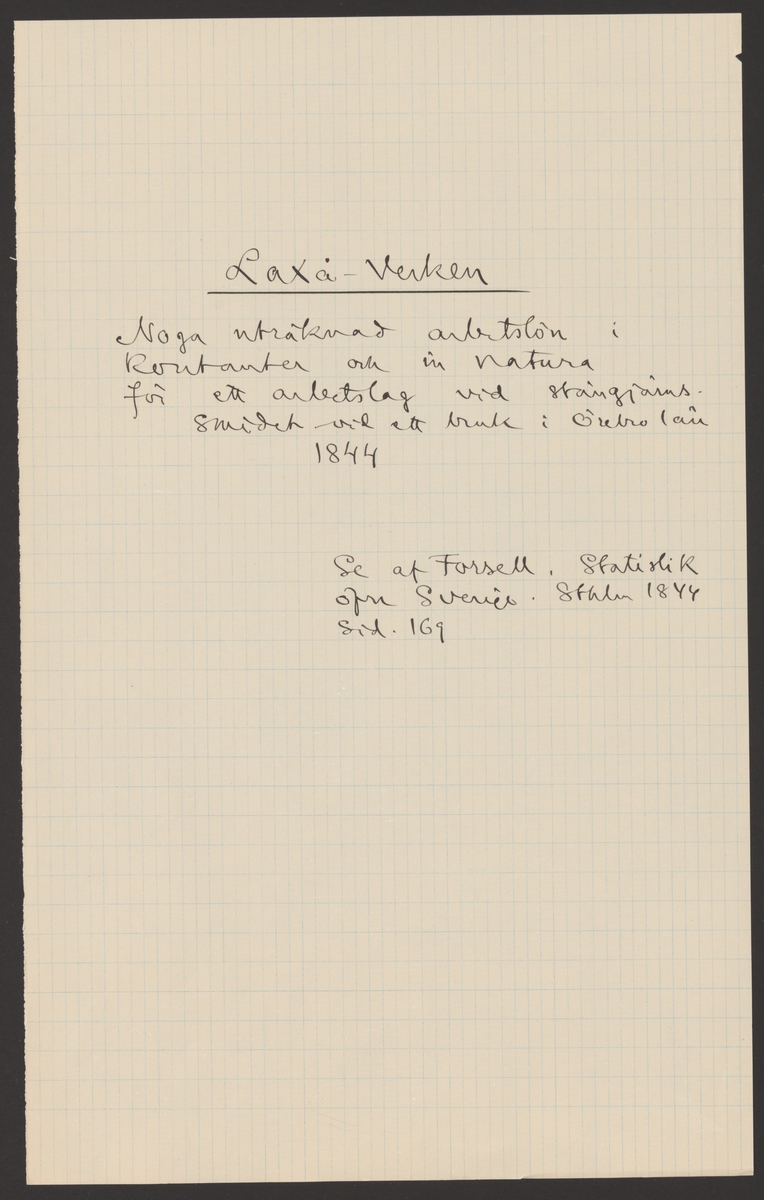 Laxå-Verken
Noga uträknad arbetslön i
Kontanter och in natura
för ett arbetslag vid stångjärns-
smidet vid ett bruk i Örebro län
1844
Se af Forsell. Statistik
öfver Sverige. Sthlm 1844
Sid. 169